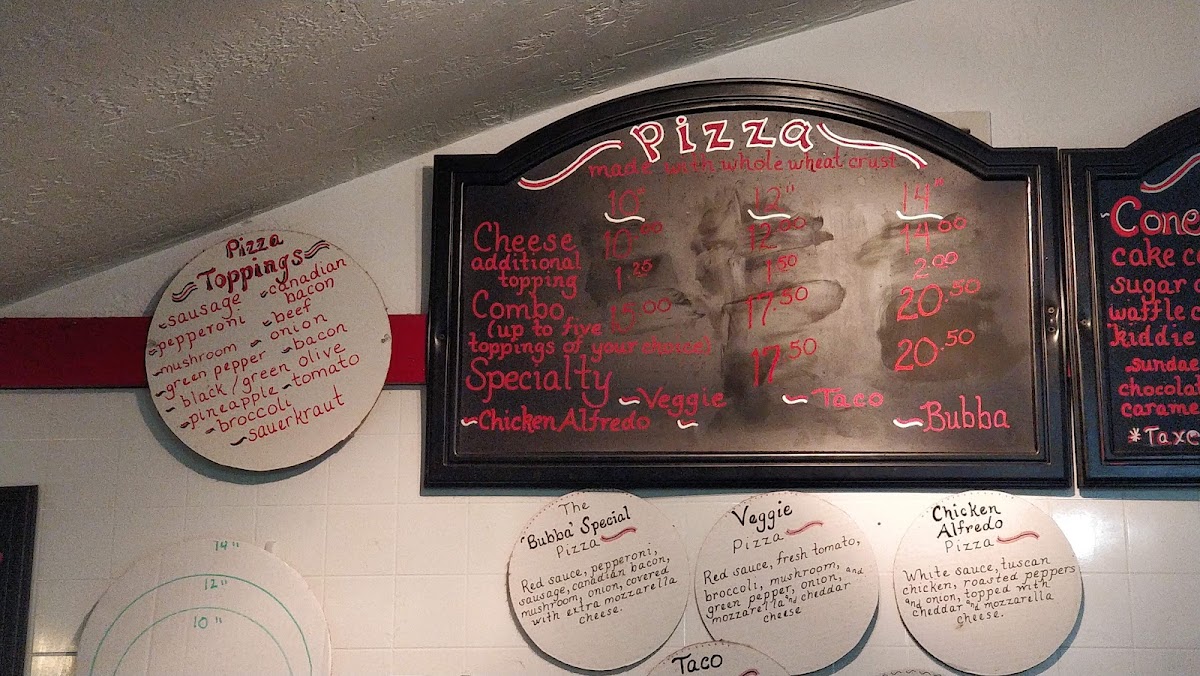 Pizza
Toppings
sausage
canadian bacon
pepperoni
beef
mushroom
onion
green pepper
bacon
black/green olive
pineapple
tomato
broccoli
sauerkraut
Pizza
made with whole wheat crust
10" 12" 14"
Cheese 10.00 12.00 14.00
additional
topping 1.25 1.50 2.00
Combo 15.00 17.50 20.50
(up to five
toppings of your choice)
Specialty 17.50 20.50
Veggie Taco
Chicken Alfredo Bubba
Cone
cake
sugar
waffle
kiddie
sundae
*Tax
The
'Bubba' Special
Pizza
Red sauce, pepperoni,
sausage, canadian bacon,
mushroom, onion, covered
with extra mozzarella
cheese.
Veggie
Pizza
Red sauce, fresh tomato,
broccoli, mushroom,
green pepper, onion, and
mozzarella and cheddar
cheese
Chicken
Alfredo
Pizza
White sauce, tuscan
chicken, roasted peppers
and onion, topped with
cheddar and mozzarella
cheese.
Taco
14"
12"
10"